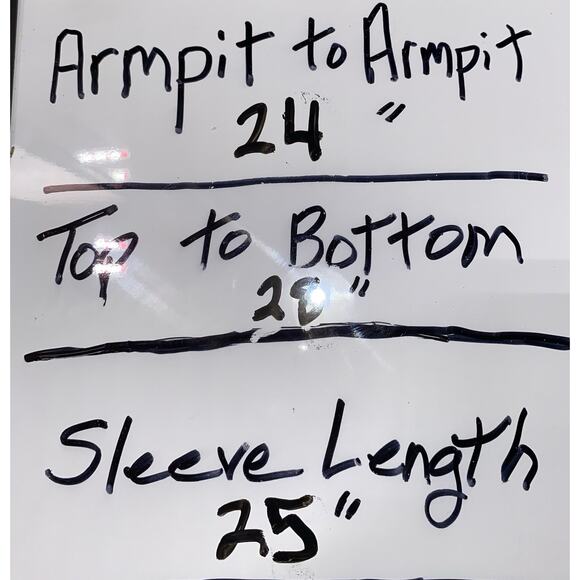 Armpit to Armpit
24"
Top to Bottom
28"
Sleeve Length
25"